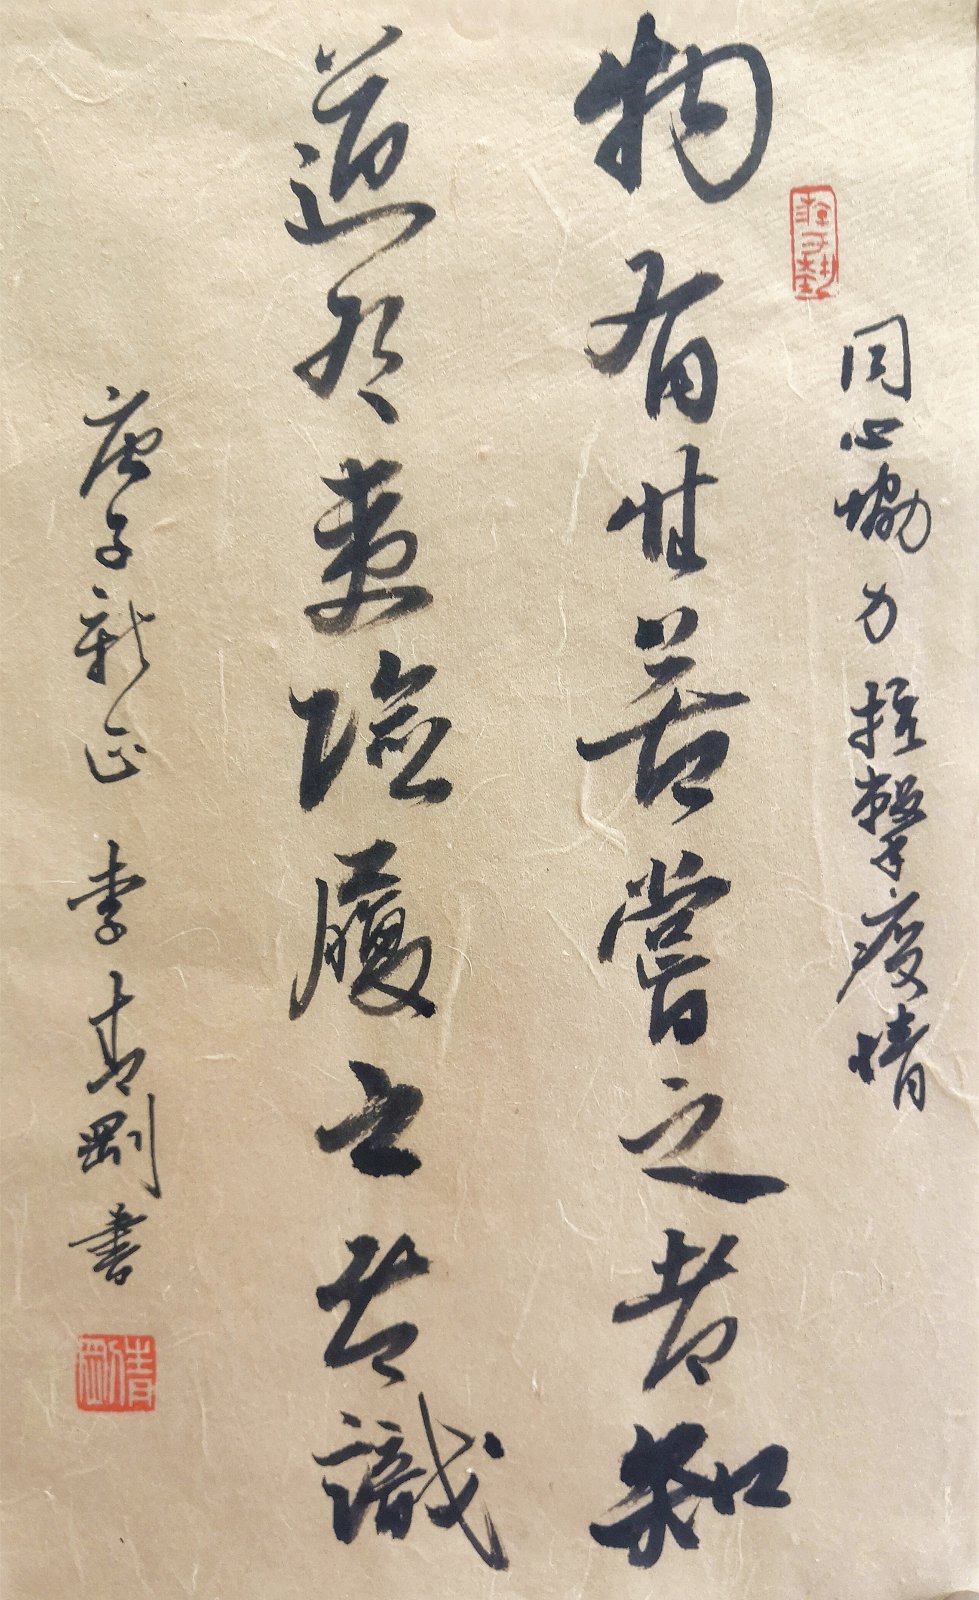 同心協力狙擊疫情
物有甘苦嘗之者知
道有夷險履之者識
庚子新正 李青剛書